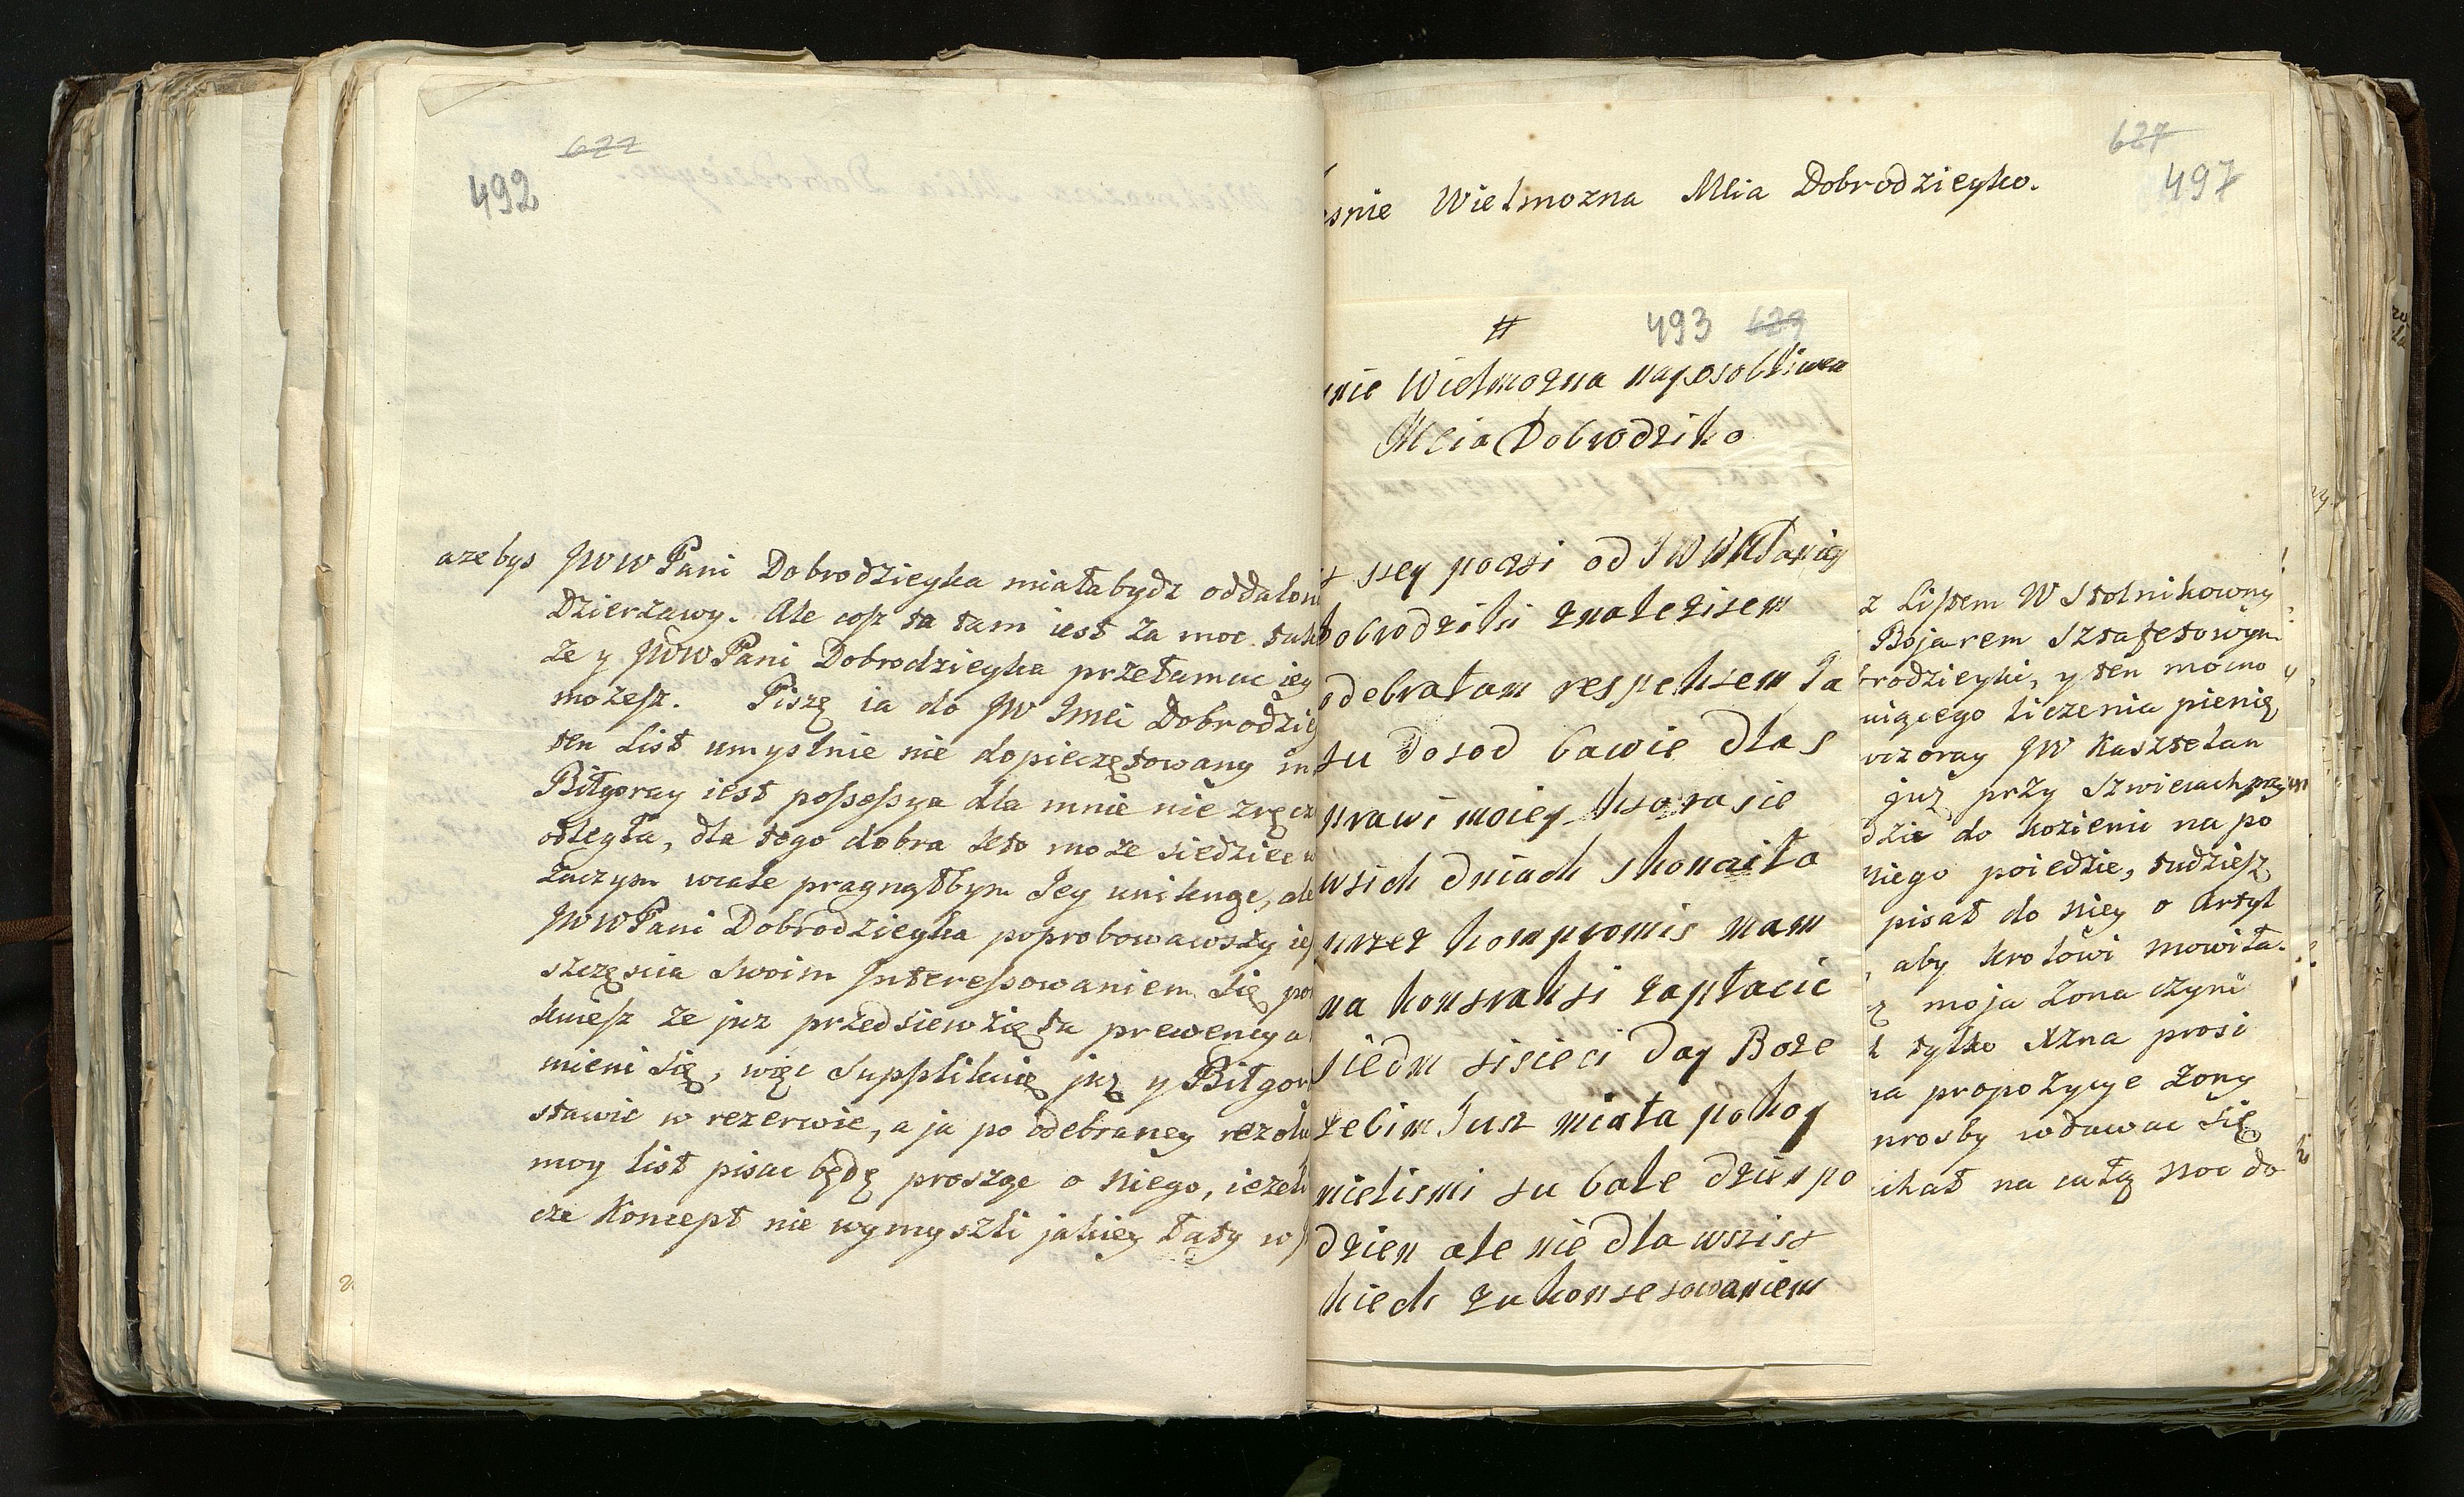 622
492
azebys JWWPani Dobrodzieyka miała bydz oddalon
Dzierzawy. Ale cosz ta tam iest za moc
Ze y JWWPani Dobrodzieyka przełamac iey
możesz. Piszę ia do JW Jmci Dobrodzie
ten List umyslnie nie dopieczętowany
Biłgoray iest possessya dla mnie nie zręcz
odległa, dla tego dobra kto może siedziec w
Zaczym wcale pragnąłbym Jey uniknąc, ale
JWWPani Dobrodzieyka poprobowawszy
szczęscia Swoim Interessowaniem Się
Ze juz przedsiewzięta prewencya
mieni Się, więc Supplikuię juz y Biłgor
stawic w rezerwie, a ja po odebraney rezolu
moy list pisac będę prosząc o niego, ieżeli
cze Koncept nie wymyszli jakiey Łaty w
627
497
snie Wielmozna Mcia Dobrodzieyko.
#
493 629
nie Wielmozna nayosobliwza
Mcia Dobrodziko
ssey poczi od JWWMPaniy
obrodziki znalezisem
odebrałam respektem Ja
tu dotod bawie dla s
prawi moiey ktora sie
wtich dniach skonczita
przez kompromis mam
na kontrakti zapłacic
siedm tisieci Day Boze
zebim Just miała pokoy
mielismi tu bale dzien po
dzien ale nie dla wszist
kich zukontetowaniem
z Listem W Stolnikowny
Bojarem Sztafetowym
rodzieyki, y ten mocno
niącego liczenia pienię
wczoray JW Kasztelan
już przy Szwiecach
dzie do kozienic na po
niego poiedzie, tudziesz
pisał do niey o Artyl
aby krolowi mowiła.
moja Zona czyni
tylko Xzna prosi
na propozycye Zony
prosby wdawac Się
ichał na całą noc do